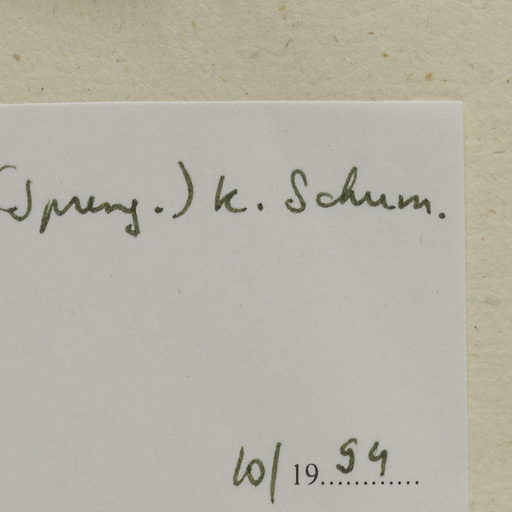 (Spreng.) K. Schum.
10/ 1994